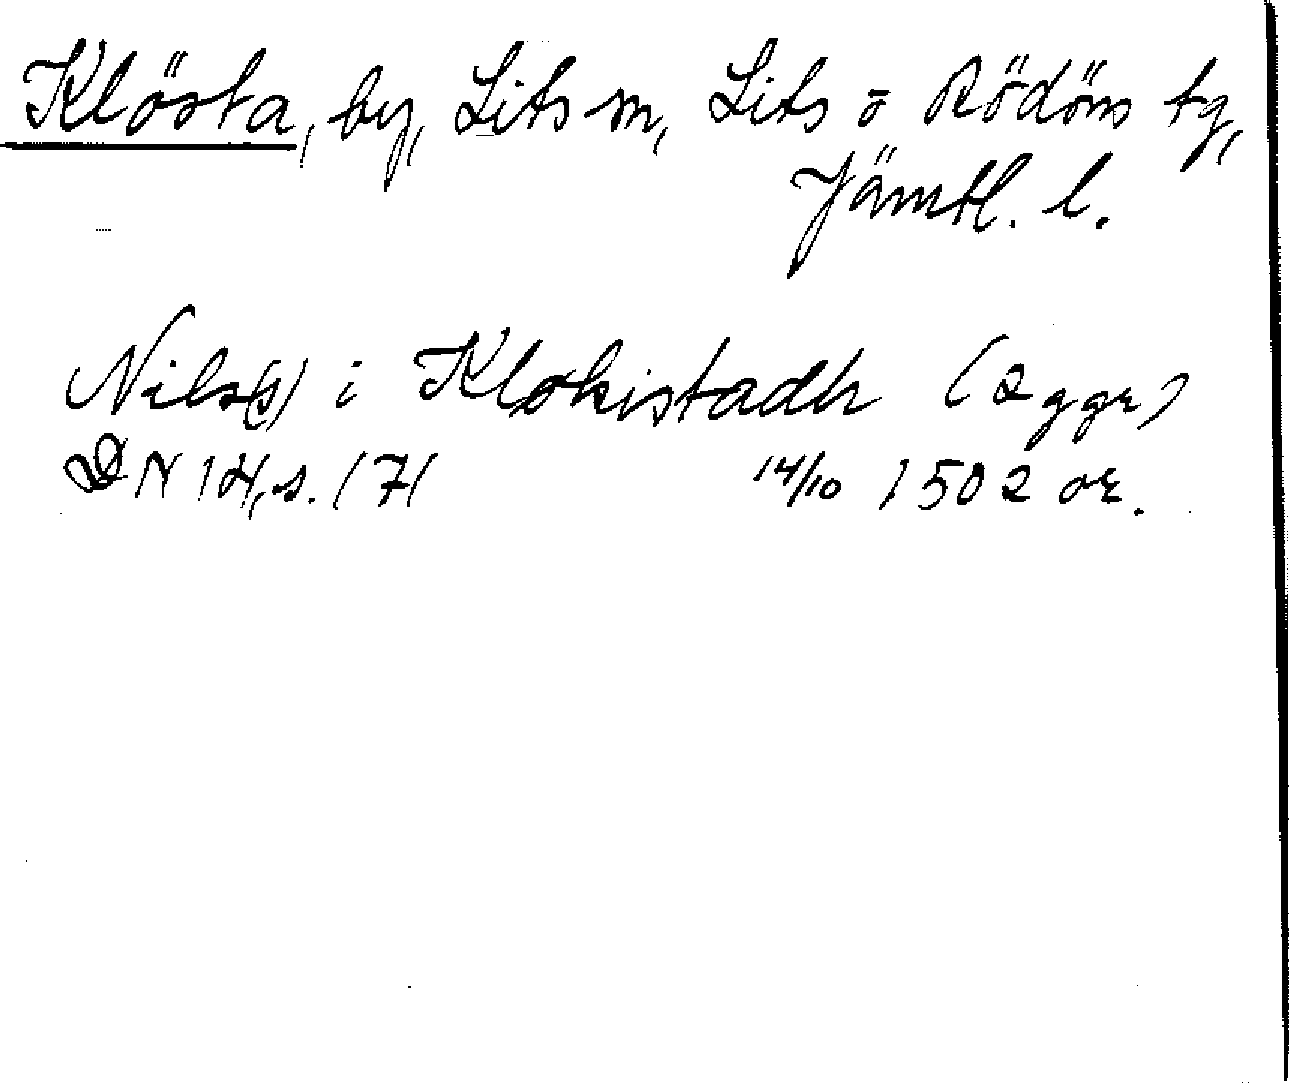 Klösta, by, Lits sn, Lits o Rödöns tg,
Jämtl. l.
Nils(s) i Klokistadh (2 ggr)
DN 14, s. 171 14/10 1502 or.